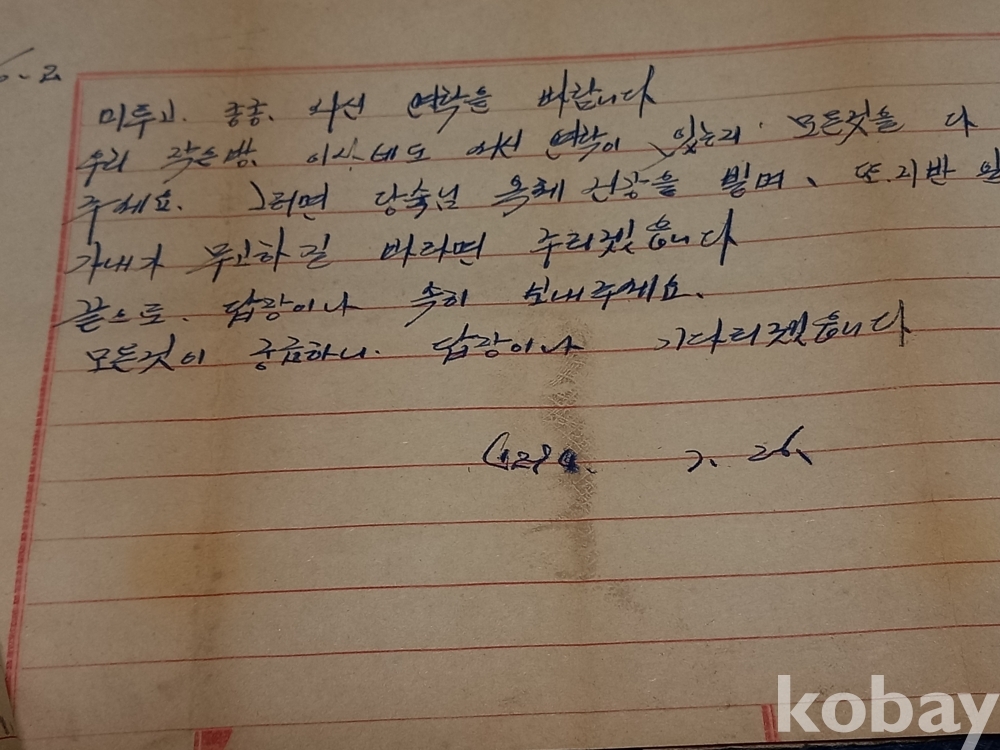 미루고. 종종. 사신 연락을 바랍니다
우리 작은방. 이사네도 어서 연락이 있는지. 모든것을 다
주세요. 그러면 당숙님 옥체 건강을 빌며、 또. 지반 일
가내가 무고하길 바라면 주리겠읍니다
끝으로. 답장이나 속히 보내주세요.
모든것이 궁금하니. 답장이나 기다리겠읍니다
7. 26.
kobay